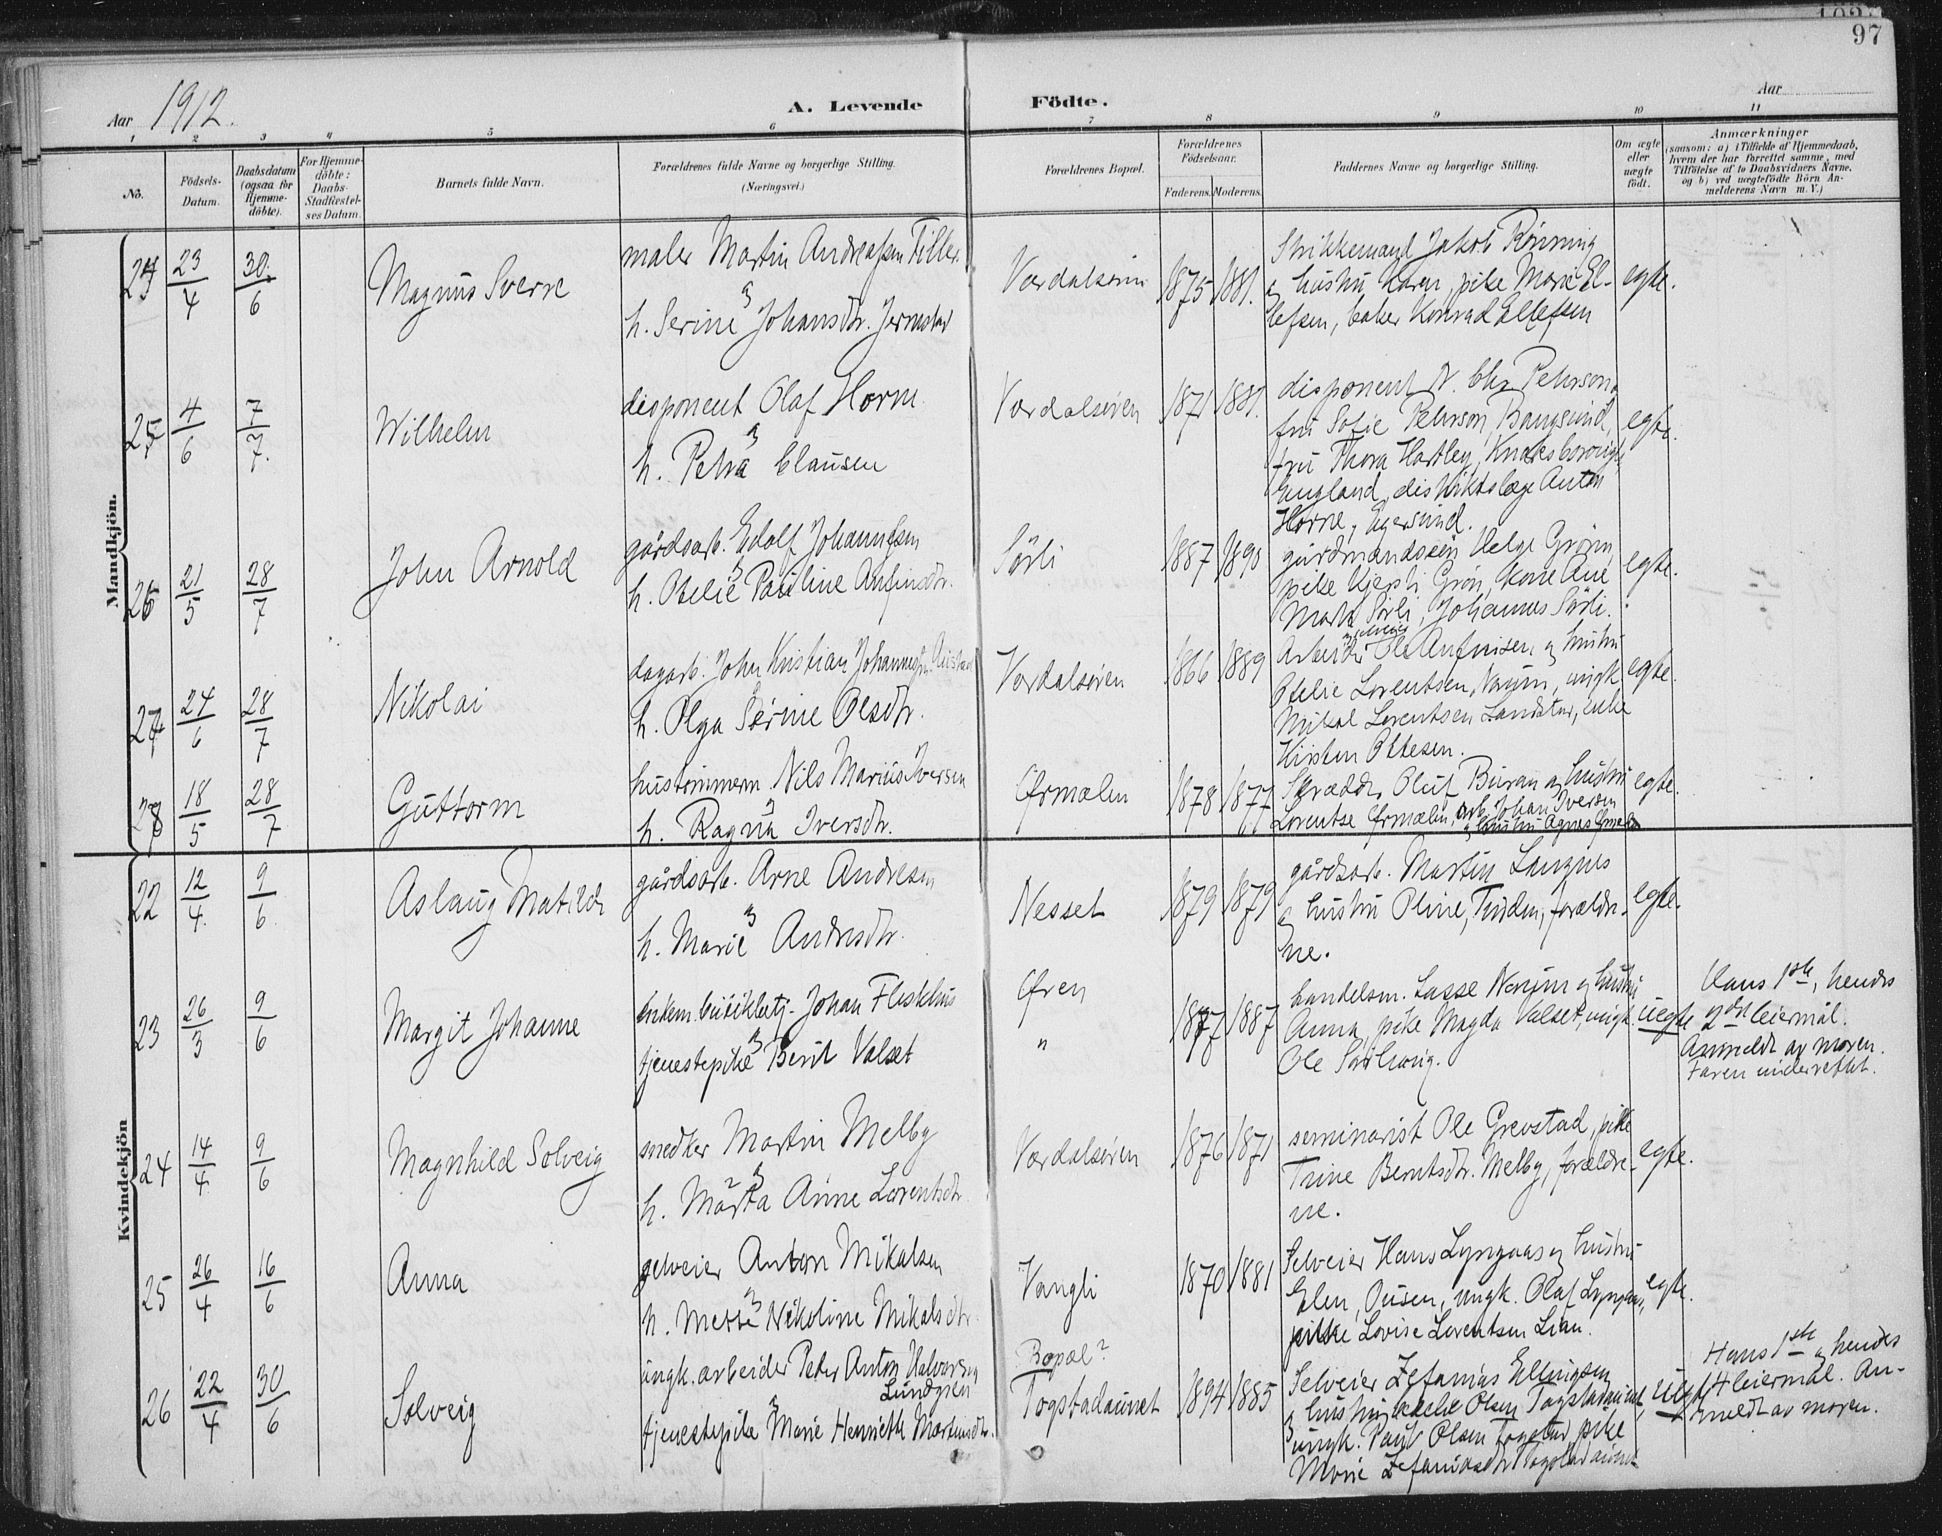 97
Aar 1912.
A. Levende Fødte.
Aar
1 2 3 4 5 6 7 8 9 10 11
No.
Fødsels-Datum.
Daabsdatum (ogsaa for Hjemme-døbte).
For Hjemme-døbte: Daabs-Stadfæstel-ses Datum.
Barnets fulde Navn.
Forældrenes fulde Navne og borgerlige Stilling.
(Næringsvei.)
Forældrenes Bopæl.
Forældrenes Fødselsaar.
Faderens. Moderens.
Faddernes Navne og borgerlige Stilling.
Om ægte eller uægte født.
Anmærkninger
(saasom: a) i Tilfælde af Hjemmedaab, hvem der har forrettet samme, med Tilføielse af to Daabsvidners Navne, og b) ved uægtefødte Børn An-melderens Navn m. V.)
Mandkjön.
23/4 30/6 Magnus Sverre
maler Martin Andreassen Tiller
h. Serine Johansdtr. Jermstad
1875 1881.
Jakob Rönning
hustru Karen, pike Marie El-
lefsen, baker Konrad Ellefsen
egte.
25 4/6 7/7 Wilhelm
disponent Olaf Horne
h. Petra Clausen
Værdalsøren 1871 1881.
disponent N. Chr. Pehrson,
fru Sofie Pehrson, Bangsund,
fru Thora Hartley, Knaresborough
England, distriktslæge Anton
Horne, Egersund.
egte.
26 21/5 28/7 John Arnold
gårdsarb. Edolf Johannessen
h. Otelie Pauline Anfinsdtr.
Sörli 1887
gårdmandssön Helge Grønn,
pike Kjersti Grøn, kone Ane
Marta Sörli, Johannes Sörli.
egte.
27 24/6 28/7 Nikolai
dagarb. John Kristian Johannes
h. Olga Serine Olsdtr.
Værdalsøren 1866 1889
Arbeider Ole Anfinsen og hustru
Otelie Lorentsen, ungk.
Mikal Lorentsen Landstad, enke
Kirsten Ottesen.
egte.
28 18/5 28/7 Guttorm
hustømmerm. Nils Marius Iversen
h. Ragna Iversdtr.
Ørmælen 1878 1877
Skrædder Oluf Buran og hustru
Lorentse Ørmælen, arb. Johan Iversen
og hustru Agnes Ørmelen
egte.
Kvindekjön
22 12/4 9/6 Aslaug Matilde
gårdsarb. Arne Andresen
h. Marie Andrsdtr.
Nesset 1879 1879
gårdsarb. Martin Langnes
og hustru Oline, Tinden, forældre-
ne.
egte.
23 26/3 9/6 Margit Johanne
enkem. butikbetj. Johan Fleskhus
tjenestepike Berit Valset
Øren
"
1877 1887
handelsm. Lasse og hustru
Anna, pike Magda Valset, ungk.
Ole
uegte
Hans 1ste, hendes
2det leiermål.
Anmeldt av moren.
Faren underrettet.
24 14/4 9/6 Magnhild Solveig
snedker Martin Melby
h. Marta Anne Lorentsdtr.
Værdalsøren 1876 1871
seminarist Ole Grevstad, pike
Trine Berntsdtr. Melby, forældre-
ne.
egte.
25 26/4 16/6 Anna
selveier Anton Mikalsen
h. Mette Nikoline Mikalsdtr.
Vangli 1870 1881
Selveier Hans Lyngaas og hustru
Elen, ungk. Olaf Lyngaas,
pike Lovise Lorentsen Lian.
egte.
26 22/4 30/6 Solveig
ungk. arbeider Peter Anton Halvorsen
Lundgren
tjenestepike Marie Henriette Martinsdtr.
Bopæl?
Togstadaunet 1894 1885
Selveier Zefanias Ellingsen
og hustru Olsen Togstadaunet,
ungk. Paul Olsen Togstad, pike
Marie Zefaniasdtr Togstadaunet
uegte
Hans 1ste, hendes
4 leiermål. An-
meldt av moren.